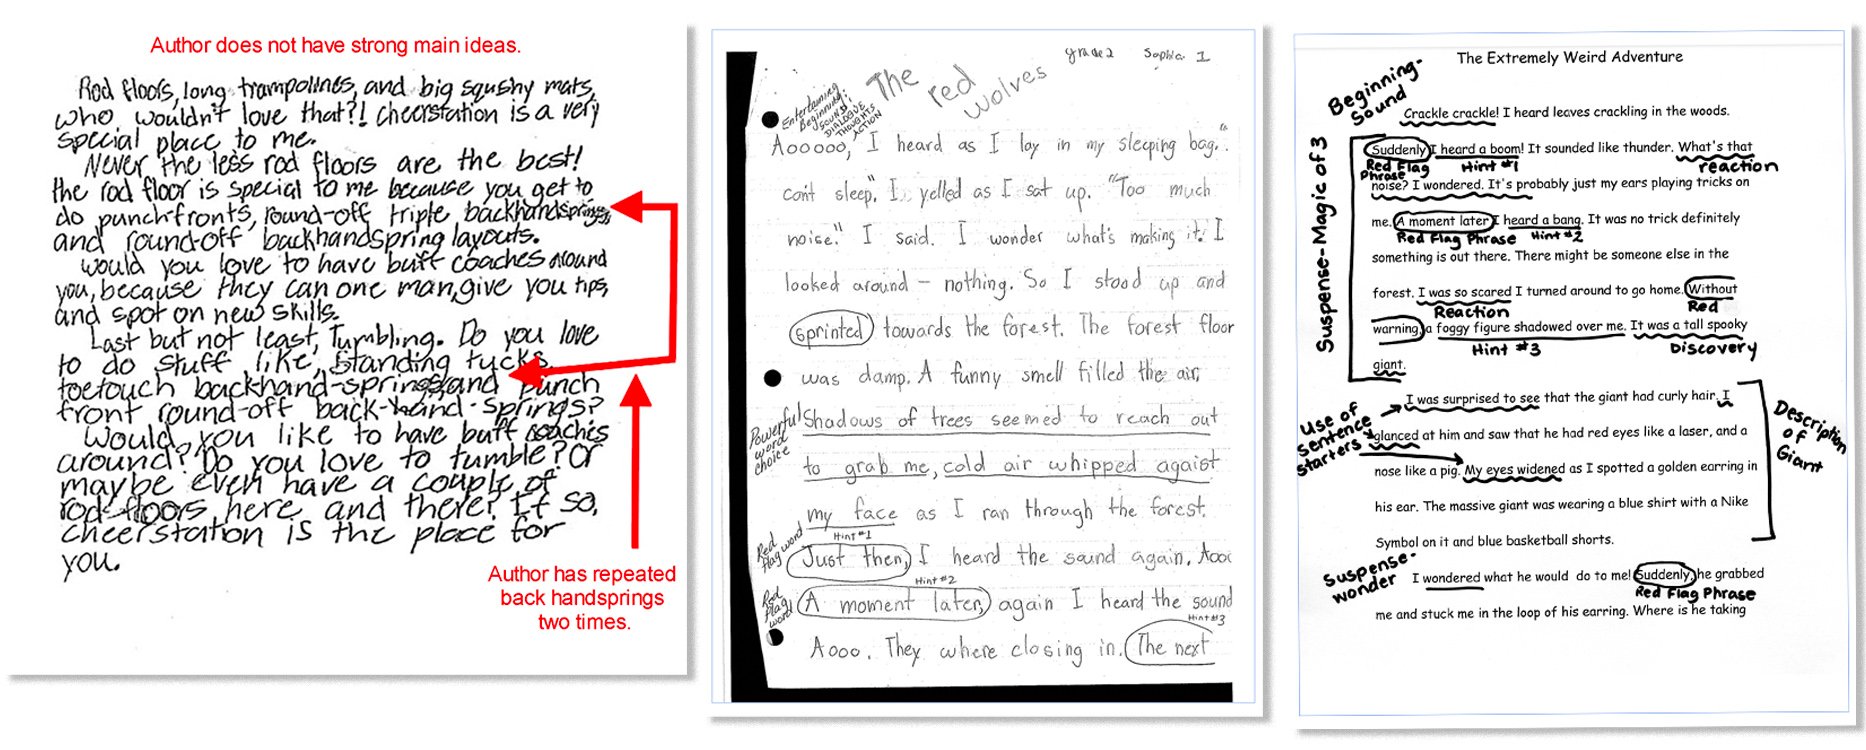 Author does not have strong main ideas.
Rod floors, long trampolines, and big squshy mats,
who wouldn't love that?! Cheerstation is a very
special place to me.
Never the less rod floors are the best!
the rod floor is special to me because you get to
do punch-fronts, round-off triple backhandsprings,
and round-off backhandspring layouts.
would you love to have buff coaches around
you, because they can one man, give you tips,
and spot on new skills.
Last but not least, Tumbling. Do you love
to do stuff like, Standing tucks,
toetouch backhand-springs, and punch
front round-off back-hand-springs?
Would you like to have buff coaches
around? Do you love to tumble? Or
maybe even have a couple of
rod-floors here and there? If so,
cheerstation is the place for
you.
Author has repeated
back handsprings
two times.
grade 2 Sophia 1
The red wolves
Entertaining
Beginning:
SOUND
DIALOGUE
THOUGHTS
ACTION
Aooooo, I heard as I lay in my sleeping bag. "
can't sleep" I yelled as I sat up. "Too much
noise." I said. I wonder what's making it. I
looked around – nothing. So I stood up and
sprinted towards the forest. The forest floor
was damp. A funny smell filled the air.
Powerful
word
choice
Shadows of trees seemed to reach out
to grab me, cold air whipped agaist
my face as I ran through the forest.
Red
Flag word
Hint #1
Just then, I heard the sound again, Aooo
Hint #2
Red
Flag
word
A moment later, again I heard the sound
Hint #3
Aooo. They where closing in. The next
The Extremely Weird Adventure
Beginning-
Sound
Crackle crackle! I heard leaves crackling in the woods.
Suspense-Magic of 3
Suddenly I heard a boom! It sounded like thunder. What's that
Red Flag Phrase Hint #1 reaction
noise? I wondered. It's probably just my ears playing tricks on
me. A moment later I heard a bang. It was no trick definitely
Red Flag Phrase Hint #2
something is out there. There might be someone else in the
forest. I was so scared I turned around to go home. Without
Reaction Red
warning, a foggy figure shadowed over me. It was a tall spooky
Hint #3 Discovery
giant.
Use of
sentence
starters
I was surprised to see that the giant had curly hair. I
glanced at him and saw that he had red eyes like a laser, and a
nose like a pig. My eyes widened as I spotted a golden earring in
his ear. The massive giant was wearing a blue shirt with a Nike
Symbol on it and blue basketball shorts.
Description
of
Giant
Suspense-
wonder
I wondered what he would do to me! Suddenly, he grabbed
Red Flag Phrase
me and stuck me in the loop of his earring. Where is he taking